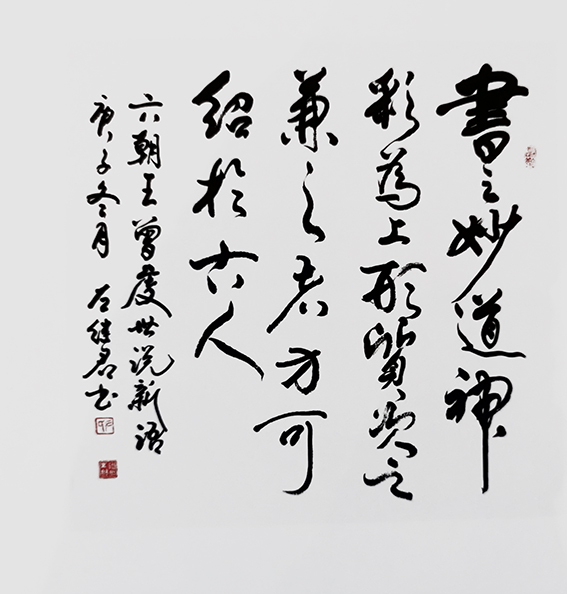 書之妙道神
彩為上形質次之
兼之者方可
紹於古人
六朝王曾虔世说新语
庚子冬月 石继君书